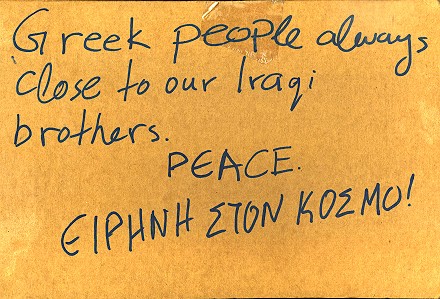 Greek people always
close to our Iraqi
brothers.
PEACE.
ΕΙΡΗΝΗ ΣΤΟΝ ΚΟΣΜΟ!